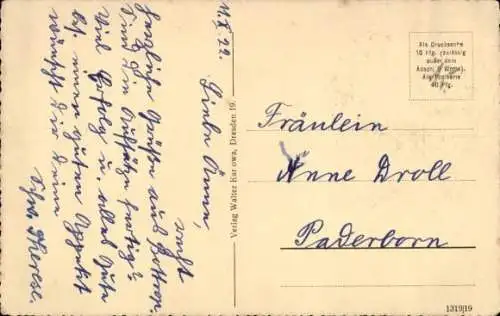 11.X.22.
Liebe Änne,
recht
herzliche Grüße aus Bottrop.
Sind die Aufsätze fertig?
Viel Erfolg u. alles Gute
bes. einen guten Appetit
wünscht Dir Deine
Schw. Therese.
Verlag Walter Har owa, Dresden 19.
Als Drucksache
10 Pfg. (zulässig
außer dem
Absch. 5 Worte).
Als Postkarte
40 Pfg.
Fräulein
Änne Droll
Paderborn
131919